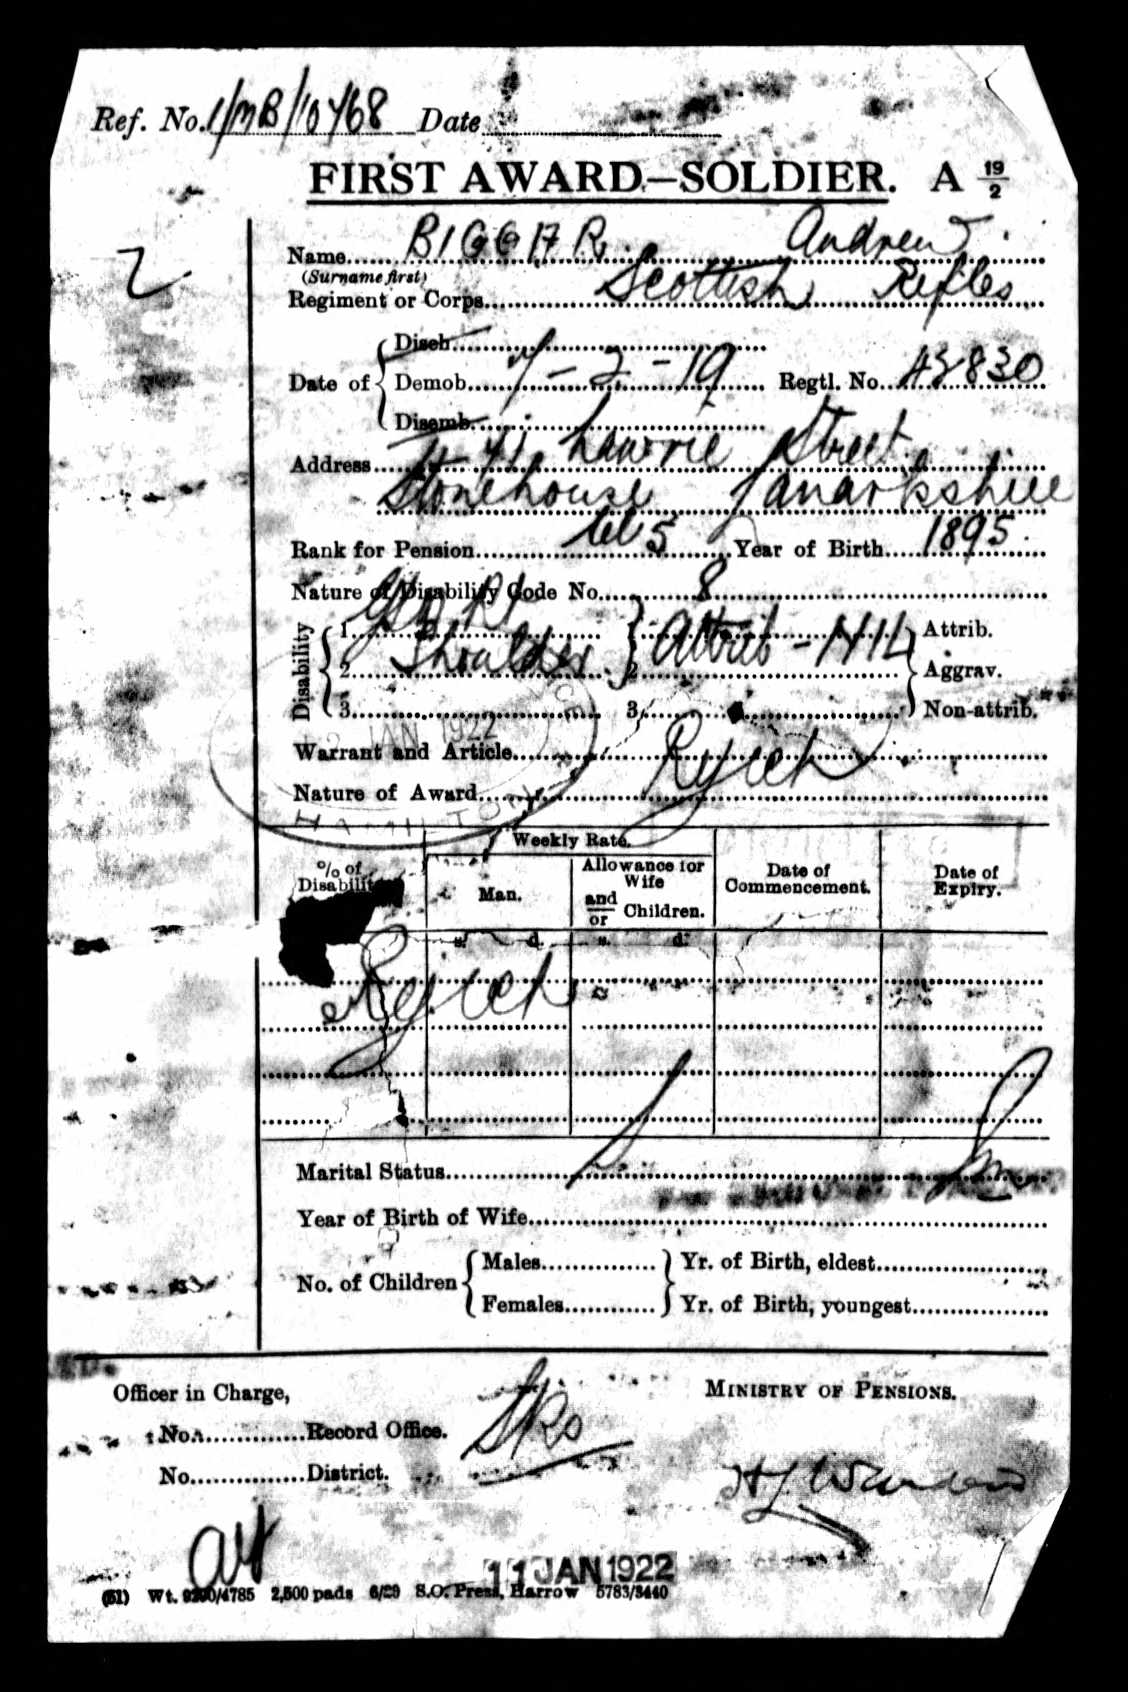 Ref. No. 1/MB/10468 Date
FIRST AWARD.—SOLDIER. A 19/2
2
Name BIGGAR. Andrew
(Surname first)
Regiment or Corps Scottish Rifles
Disch.
Date of Demob. 7-2-19 Regtl. No. 43830
Disemb.
Address 41 Lawrie Street
Stonehouse Lanarkshire
Rank for Pension Cl 5 Year of Birth 1895.
Nature of Disability Code No. 8
Disability
1 GSW Rt 1 Attrib - Nil Attrib.
2 Shoulder 2 Aggrav.
3 3 Non-attrib.
JAN 1922
Warrant and Article
Nature of Award Reject
HAMILTON
Weekly Rate.
% of Disability
Man.
Allowance for Wife and/or Children.
Date of Commencement.
Date of Expiry.
s. d. s. d.
Reject
Marital Status S.
Year of Birth of Wife
No. of Children
Males Yr. of Birth, eldest
Females Yr. of Birth, youngest
Officer in Charge, MINISTRY OF PENSIONS.
No. Record Office.
No. District.
11 JAN 1922
(51) Wt. 9290/4785 2,500 pads 6/20 S.O. Press, Harrow 5783/3440